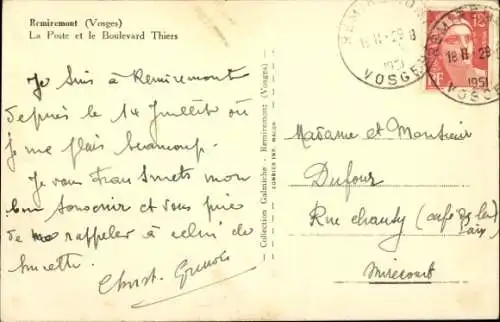 Remiremont (Vosges)
La Poste et le Boulevard Thiers
Je suis à Remiremont
depuis le 14 Juillet où
je me plais beaucoup.
Je vous transmets mon
bon souvenir et vous prie
de me rappeler à celui de
Christ.
Collection Galmiche - Remiremont (Vosges)
COMBIER IMP. MACON
18 H - 29 8
1951
VOSGES
18 H - 29
1951
VOSGES
Madame et Monsieur
Dufour
Rue chanzy (café de la
Paix)
Mirecourt